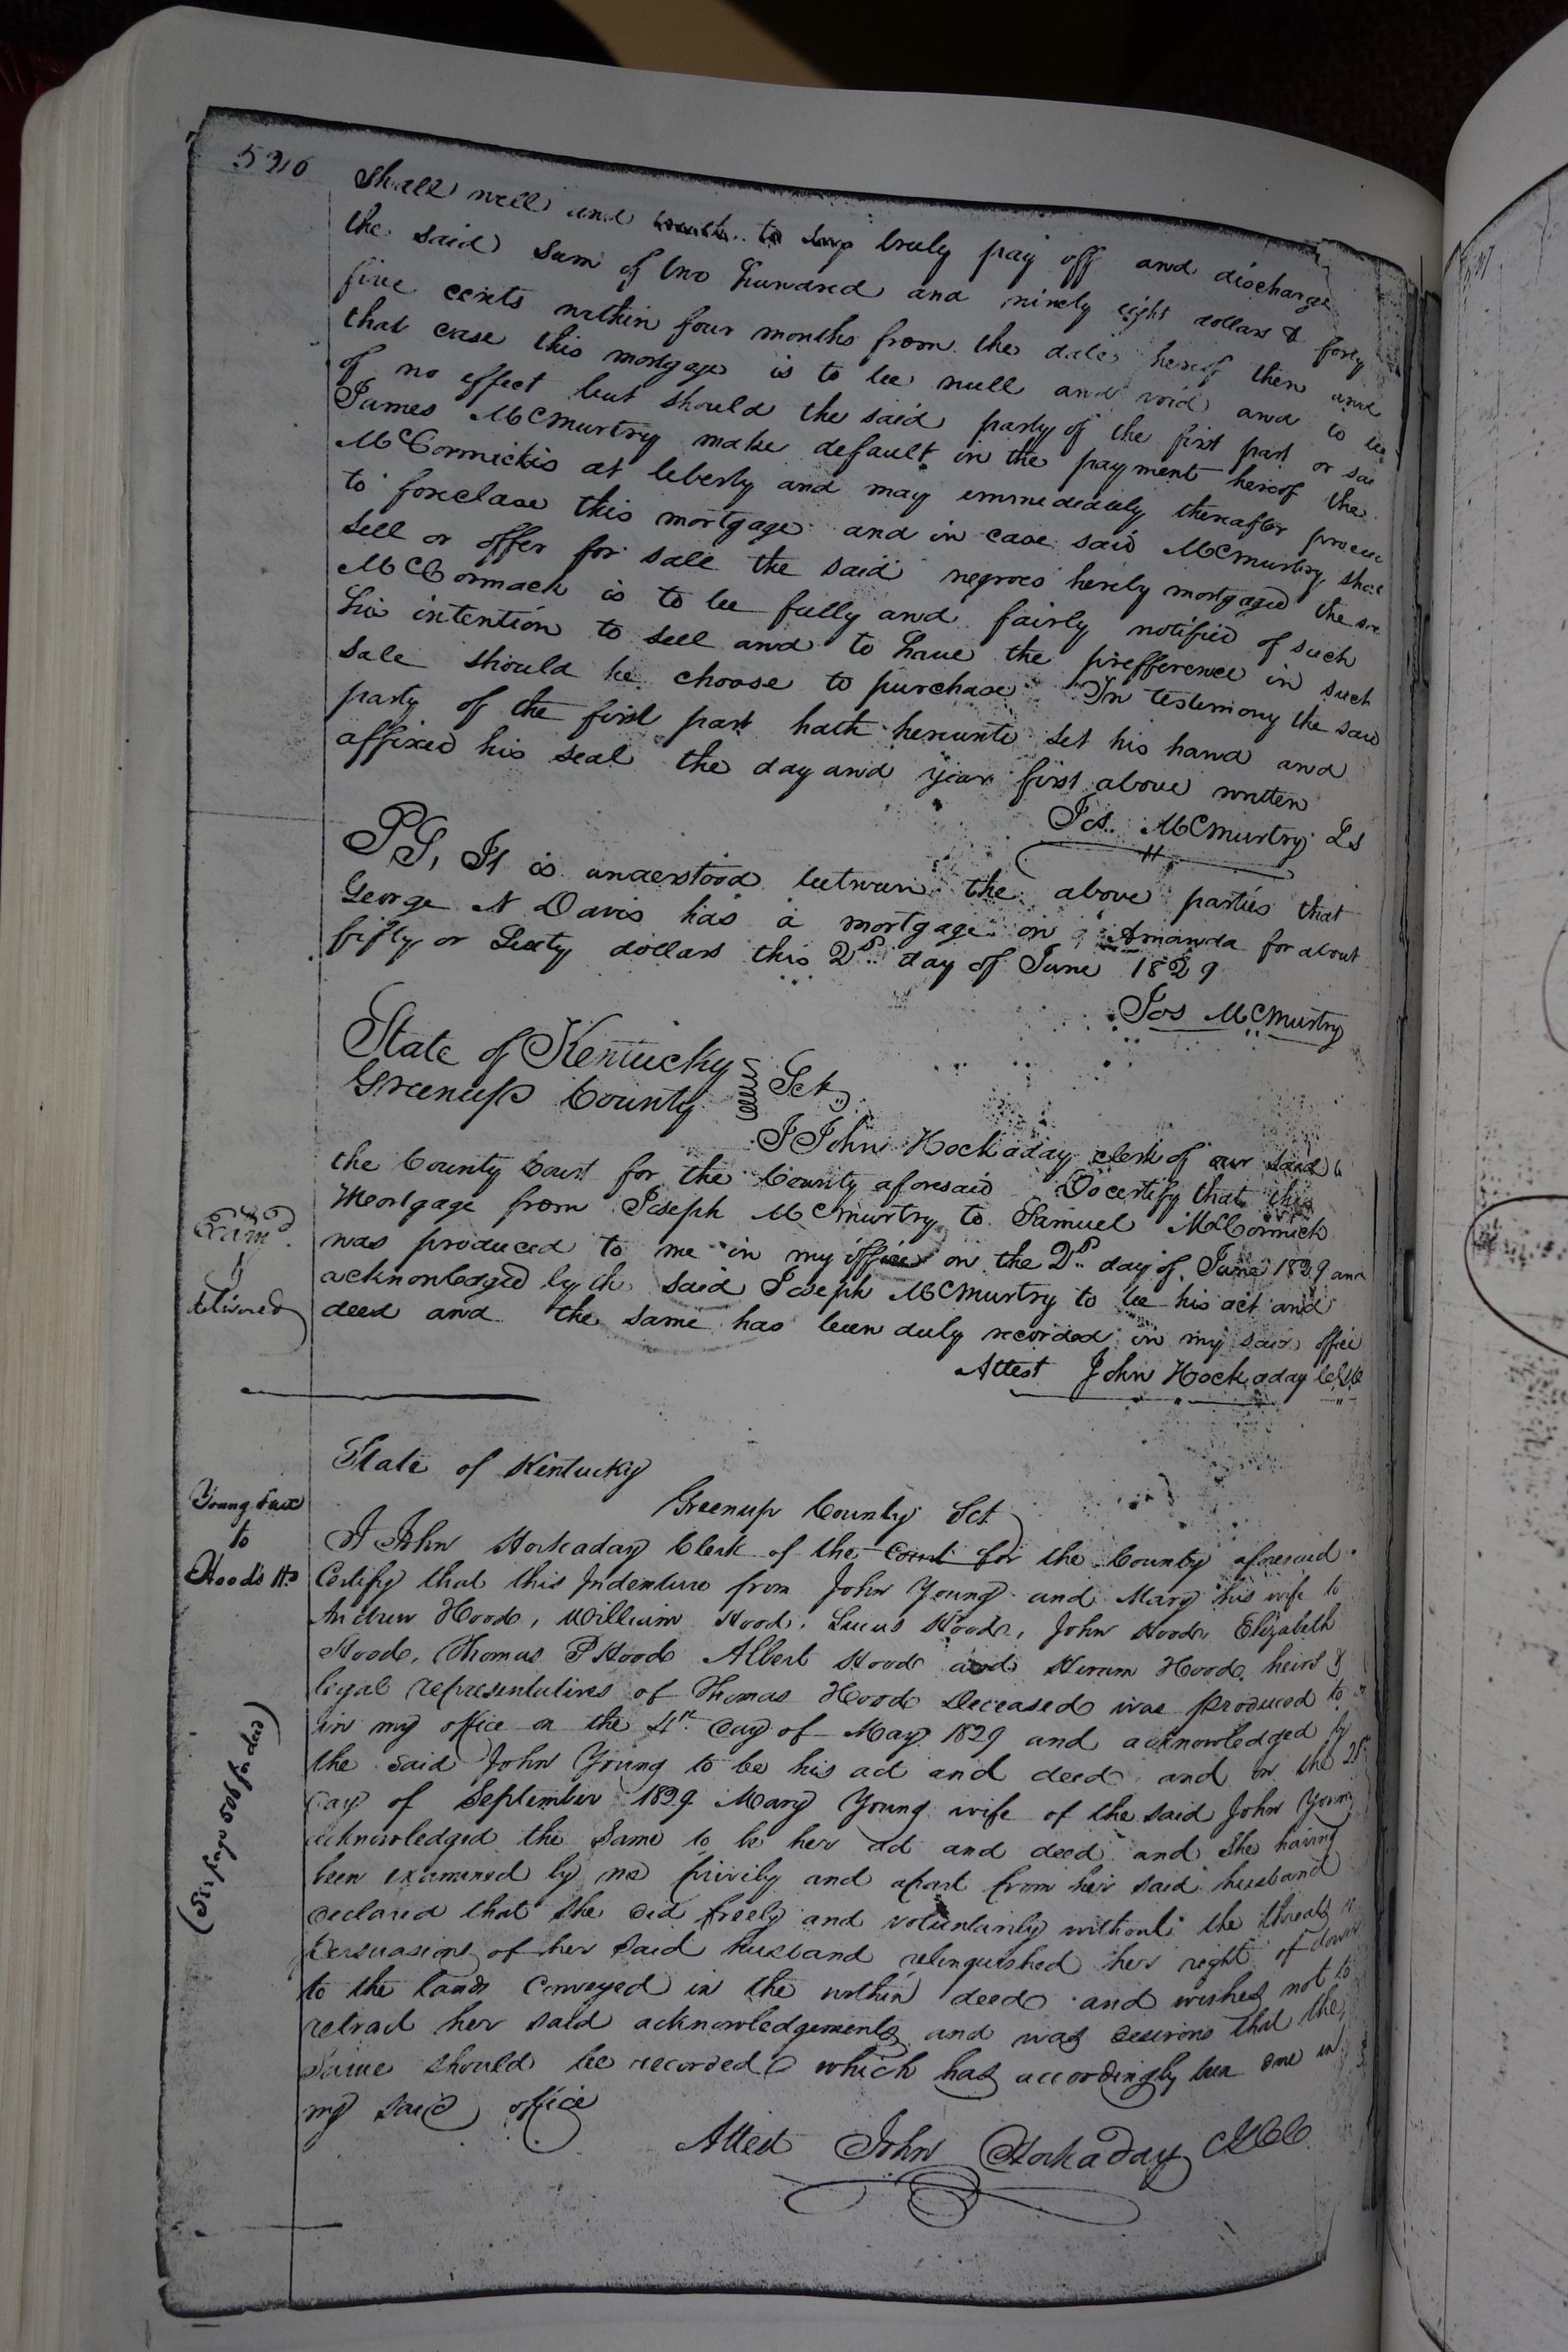 526
Shall well and truly pay off and discharge
the said Sum of two hundred and ninety eight dollars & forty
five cents within four months from the date hereof then and
that case this mortgage is to be null and void and to be
of no effect but should the said party of the first part or
James McMurtry make default in the payment hereof the
McCormick is at liberty and may immediately thereafter
to foreclose this mortgage and in case said McMurtry
sell or offer for sale the said negroes hereby mortgaged the
McCormack is to be fully and fairly notified of such
his intention to sell and to have the prefference in such
sale should he choose to purchase In testimony the said
party of the first part hath hereunto set his hand and
affixed his seal the day and year first above written
Jos. McMurtry LS
PS, It is understood between the above parties that
George N Davis has a mortgage on Amanda for about
fifty or Sixty dollars this 2d day of June 1829
Jos McMurtry
State of Kentucky
Greenup County Sct
I John Hockaday clerk of our said
the County Court for the County aforesaid Do certify that this
Mortgage from Joseph McMurtry to Samuel McCormick
was produced to me in my office on the 2d day of June 1829 and
acknowledged by the said Joseph McMurtry to be his act and
deed and the same has been duly recorded in my said office
Attest John Hockaday
Exam'd
&
delivered
State of Kentucky
Greenup County Sct
Young &ux
to
Hood's Hs
I John Hockaday Clerk of the Court for the County aforesaid
Certify that this Indenture from John Young and Mary his wife to
Andrew Hood, William Hood, Lucus Hood, John Hood, Elizabeth
Hood, Thomas P Hood Albert Hood and Hiram Hood heirs &
legal representatives of Thomas Hood Deceased was produced to
in my office on the 4th day of May 1829 and acknowledged by
the said John Young to be his act and deed and on the
day of September 1829 Mary Young wife of the said John Young
acknowledged the Same to be her act and deed and She having
been examined by me privily and apart from her said husband
declared that she did freely and voluntarily without the threats or
persuasions of her said husband relinquished her right of dower
to the lands conveyed in the within deed and wishes not to
retract her said acknowledgements and was desirous that the
Same should be recorded which has accordingly been done in
my said office
(See page 505 for deed)
Attest John Hockaday